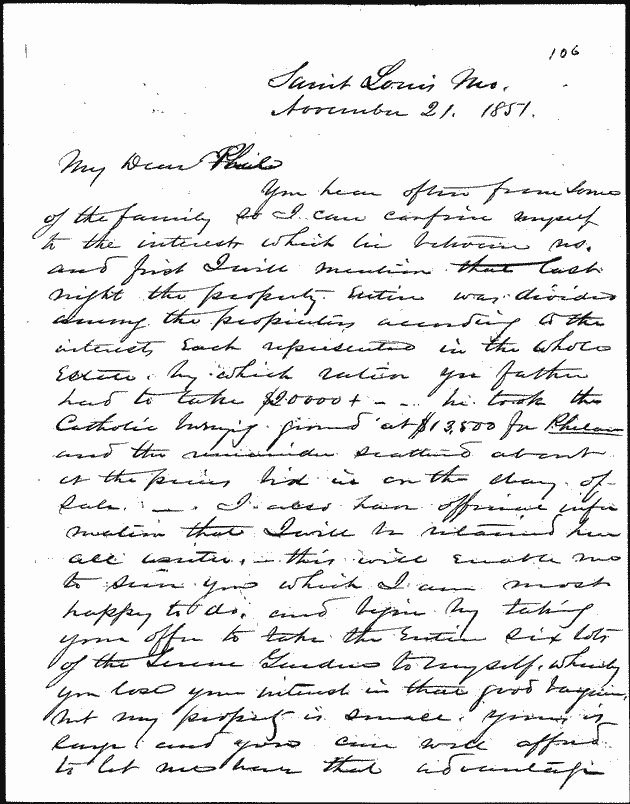 106
Saint Louis Mo.
November 21. 1851.
My Dear Phil
You hear often from some
of the family so I can confine myself
to the interests which lie between us.
and first I will mention that last
night the property entire was divided
among the proprietors according to the
interests each represented in the whole
Estate. by which ration your father
had to take $20000+ — he took the
Catholic burying ground at $13,500 for Phelan
and the remainder scattered about
at the prices bid in on the day of
sale. — I also have official infor
mation that I will be retained here
all winter. — this will enable me
to serve you which I am most
happy to do. and begin by taking
your offer to take the entire six lots
of the Gardens to myself. whereby
you lose your interest in that good bargain.
but my property is small. yours is
large and you can well afford
to let me have that advantage